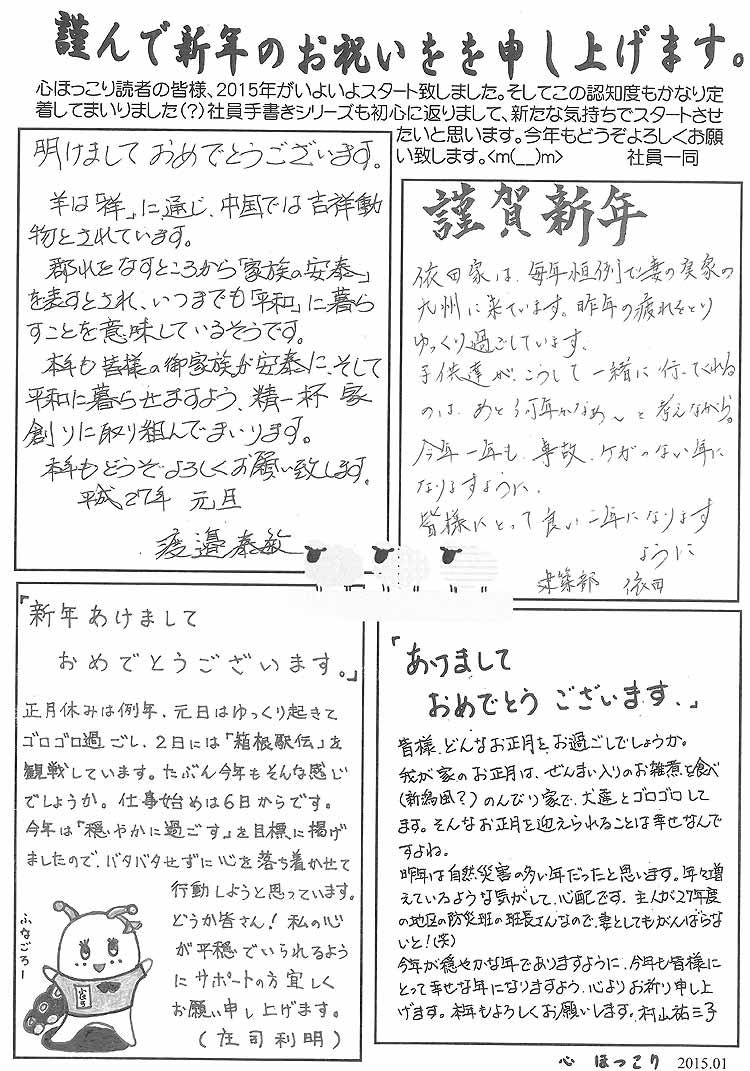 謹んで新年のお祝いをを申し上げます。
心ほっこり読者の皆様、2015年がいよいよスタート致しました。そしてこの認知度もかなり定
着してまいりました(?)社員手書きシリーズも初心に返りまして、新たな気持ちでスタートさせ
たいと思います。今年もどうぞよろしくお願
い致します。<m(__)m> 社員一同
明けまして おめでとうございます。
羊は「祥」に通じ、中国では吉祥動
物とされています。
郡れをなすところから「家族の安泰」
を表すとされ、いつまでも「平和」に暮ら
すことを意味しているそうです。
本年も皆様の御家族が安泰に、そして
平和に暮らせますよう、精一杯 家
創りに取り組んでまいります。
本年もどうぞよろしくお願い致します。
平成27年 元旦
渡邉泰敏
謹賀新年
依田家は、毎年恒例で妻の実家の
九州に来ています。昨年の疲れをとり
ゆっくり過ごしています。
子供達が、こうして一緒に行ってくれる
のは、あと何年かなぁ〜と考えながら。
今年一年も、事故、ケガのない年に
なりますように、
皆様にとって良い一年になります
ように
建築部 依田
『新年あけまして
おめでとうございます。』
正月休みは例年、元日はゆっくり起きて
ゴロゴロ過ごし、2日には「箱根駅伝」を
観戦しています。たぶん今年もそんな感じ
でしょうか。仕事始めは6日からです。
今年は『穏やかに過ごす』を目標に掲げ
ましたので、バタバタせずに心を落ち着かせて
行動しようと思っています。
どうか皆さん!私の心
が平穏でいられるよう
にサポートの方宜しく
お願い申し上げます。
(庄司利明)
ふなごろー
「あけまして
おめでとう ございます、」
皆様、どんなお正月をお過ごしでしょうか。
我が家のお正月は、ぜんまい入りのお雑煮を食べ
(新潟風?)のんびり家で、犬達とゴロゴロして
ます。そんなお正月を迎えられることは幸せなんで
すよね。
昨年は自然災害の多い年だったと思います。年々増
えているような気がして、心配です。主人が27年度
の地区の防災班の班長さんなので、妻としてもがんばらな
いと!(笑)
今年が穏やかな年でありますように、今年も皆様に
とって幸せな年になりますよう、心よりお祈り申し上
げます。本年もよろしくお願いします。村山祐三子
心 ほっこり 2015.01